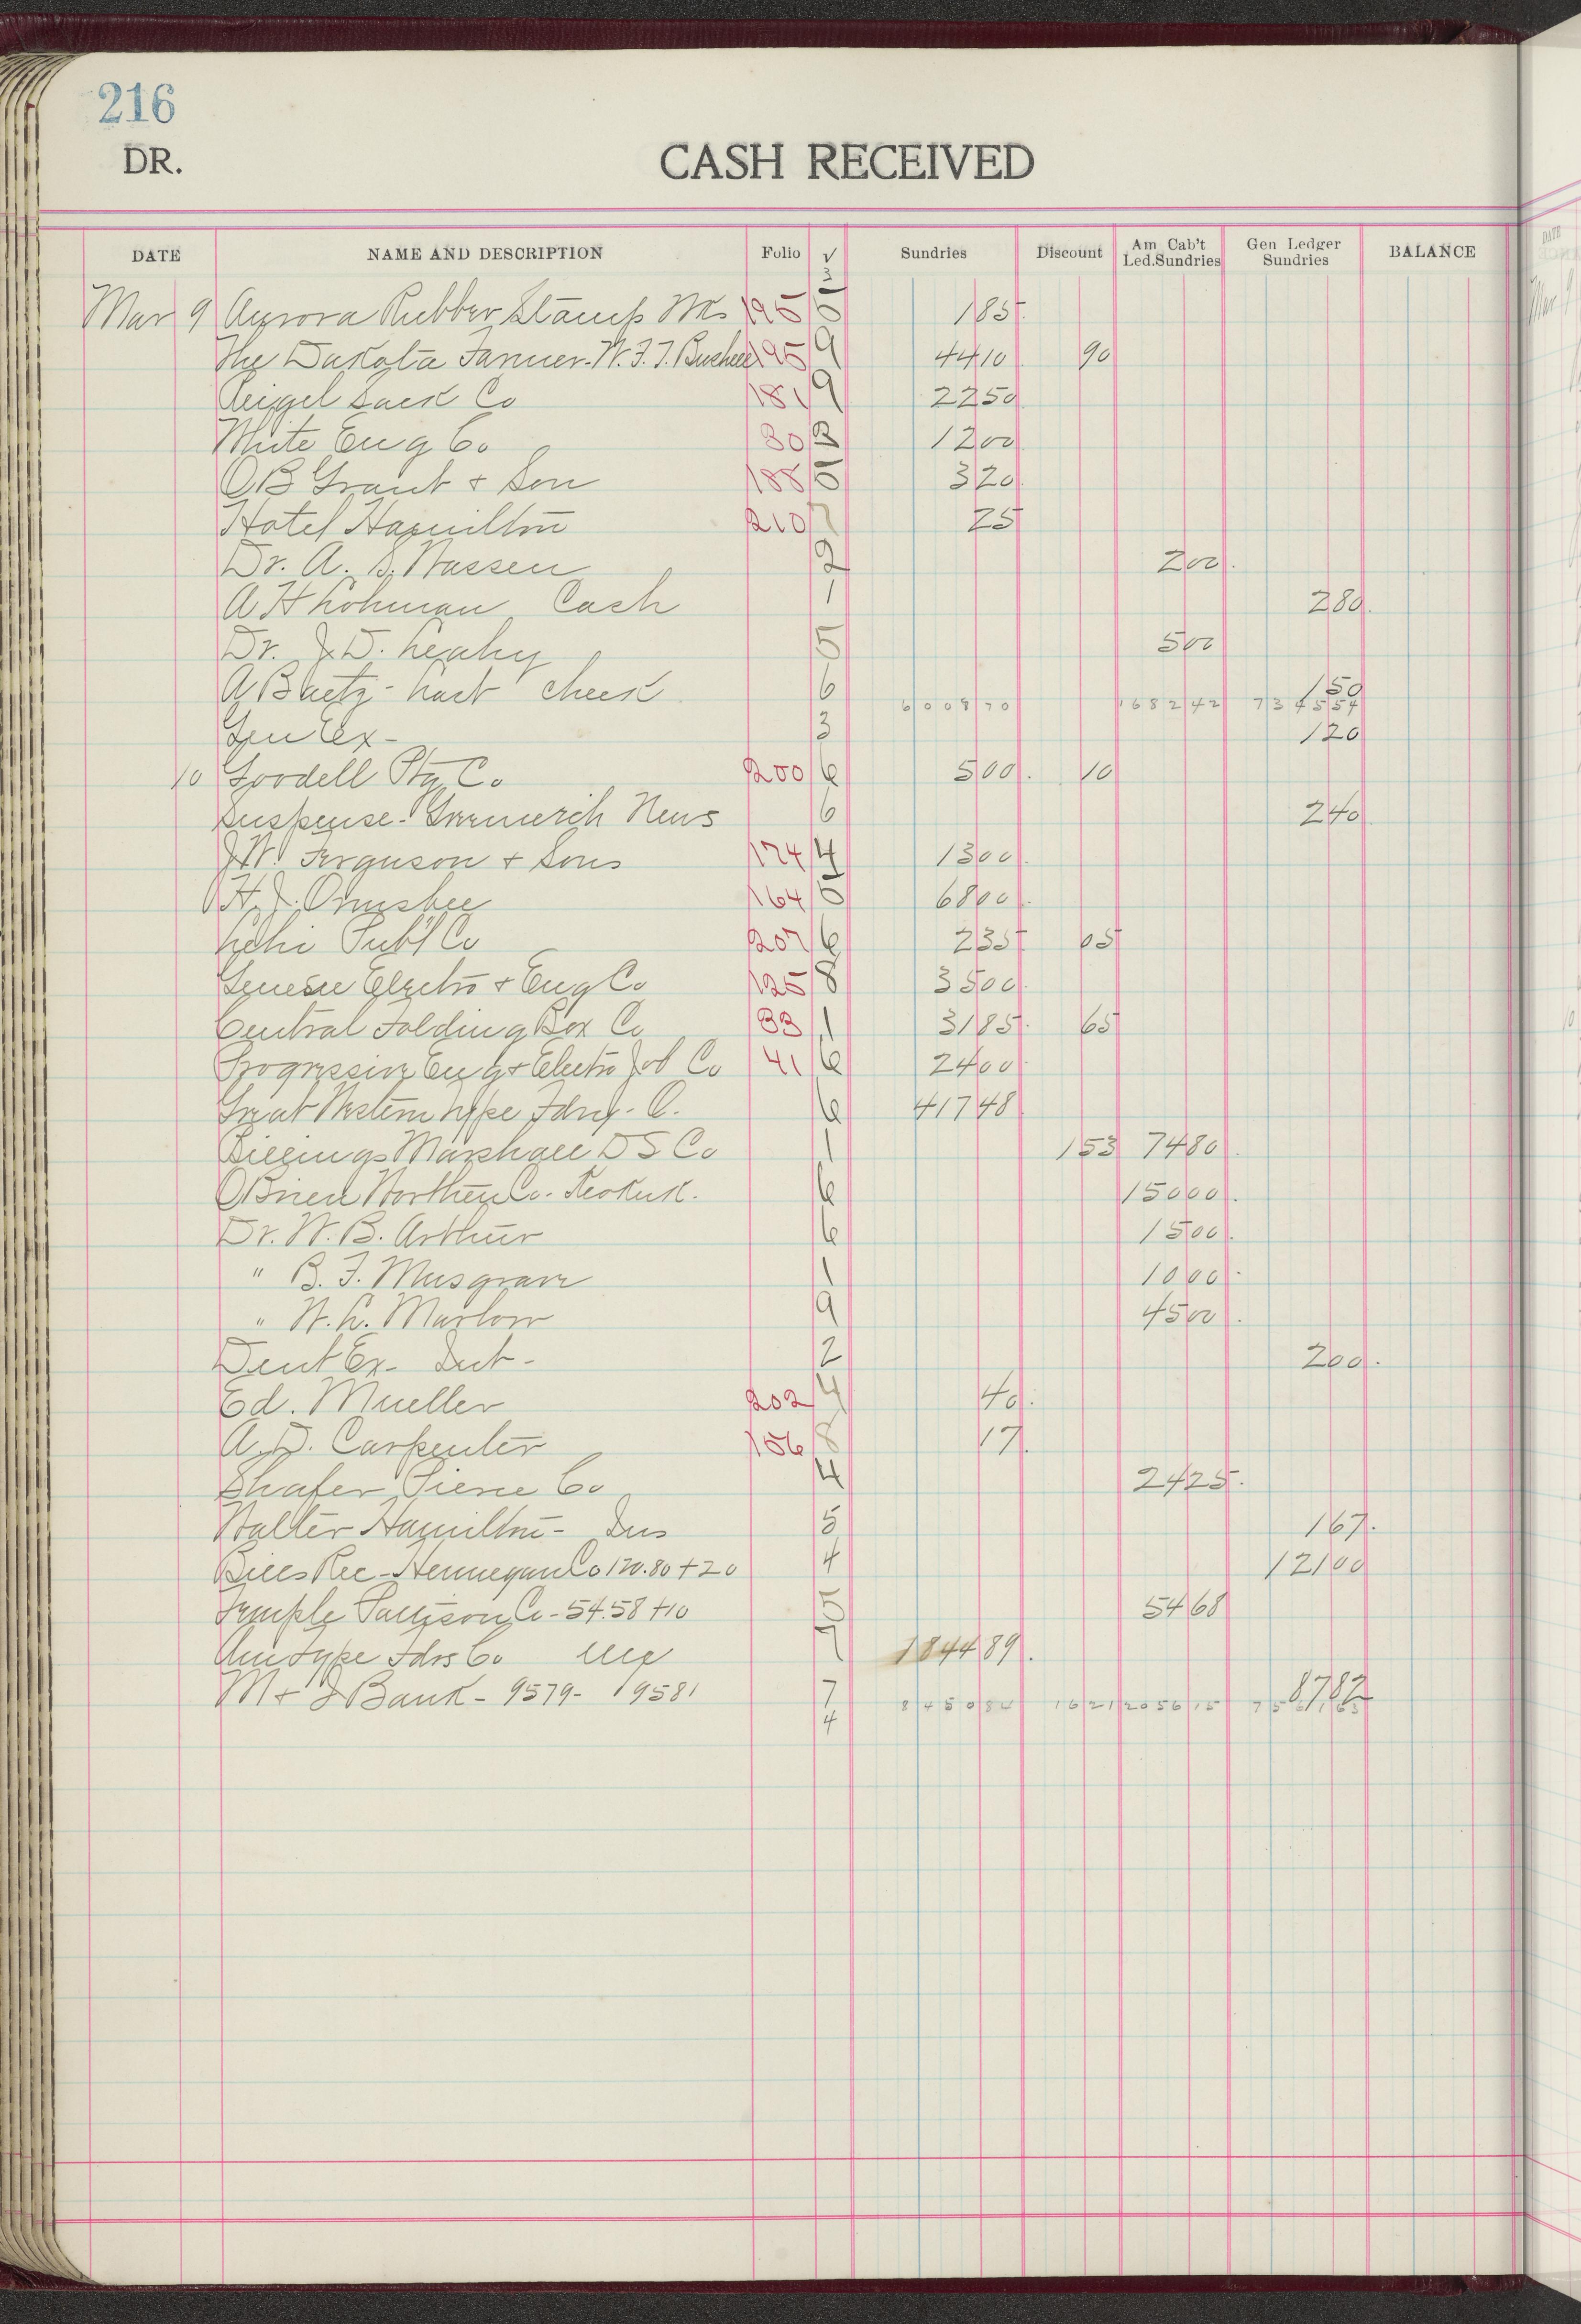 216
DR. CASH RECEIVED
DATE NAME AND DESCRIPTION Folio √ Sundries Discount Am Cab't Led.Sundries Gen Ledger Sundries BALANCE
3
Mar 9 Aurora Rubber Stamp Wks 195 5 1 85
The Dakota Farmer - W. F. T. Bushell 195 9 44 10 90
Reigel Sack Co 181 9 22 50
White Eng Co 30 3 12 00
O B Grant + Son 188 5 3 20
Hotel Hamilton 210 7 25
Dr. A. S. Wassen 2 2 00
A H Lohman Cash 1 2 80
Dr. J. D. Leahy 5 5 00
A Baetz - Cart check 6 1 50
6008 70 1682 42 734554
Gen Ex - 3 1 20
10 Goodell Ptg Co 200 6 5 00 10
Suspense - Greenwich News 6 2 40
J W. Ferguson + Sons 174 4 13 00
H. J. Ormsbee 164 5 68 00
Lehi Pub'l Co 207 6 2 35 05
Genesee Electro + Eng Co 125 8 35 00
Central Folding Box Co 33 1 31 85 65
Progressive Eng + Electro Job Co 41 6 24 00
Great Western Type Fdry - O. 6 417 48
Billings Marshall D S Co 1 1 53 74 80
O Brien Worthen Co. Keokuk. 6 150 00
Dr. W. B. Arthur 6 15 00
" B. F. Musgrave 1 10 00
" W. L. Marlow 9 45 00
Dent Ex - Int - 2 2 00
Ed. Mueller 202 4 40
A. D. Carpenter 156 8 17
Shafer Pierce Co 4 24 25
Walter Hamilton - Ins 5 1 67
Bills Rec - Hennegan Co 120.80 + 20 4 121 00
Temple Pattison Co - 54.58 + 10 5 54 68
Am Type Fdrs Co 7 1844 89
M + I Bank - 9579 - 9581 7 87 82
4 8450 84 16 21 2056 15